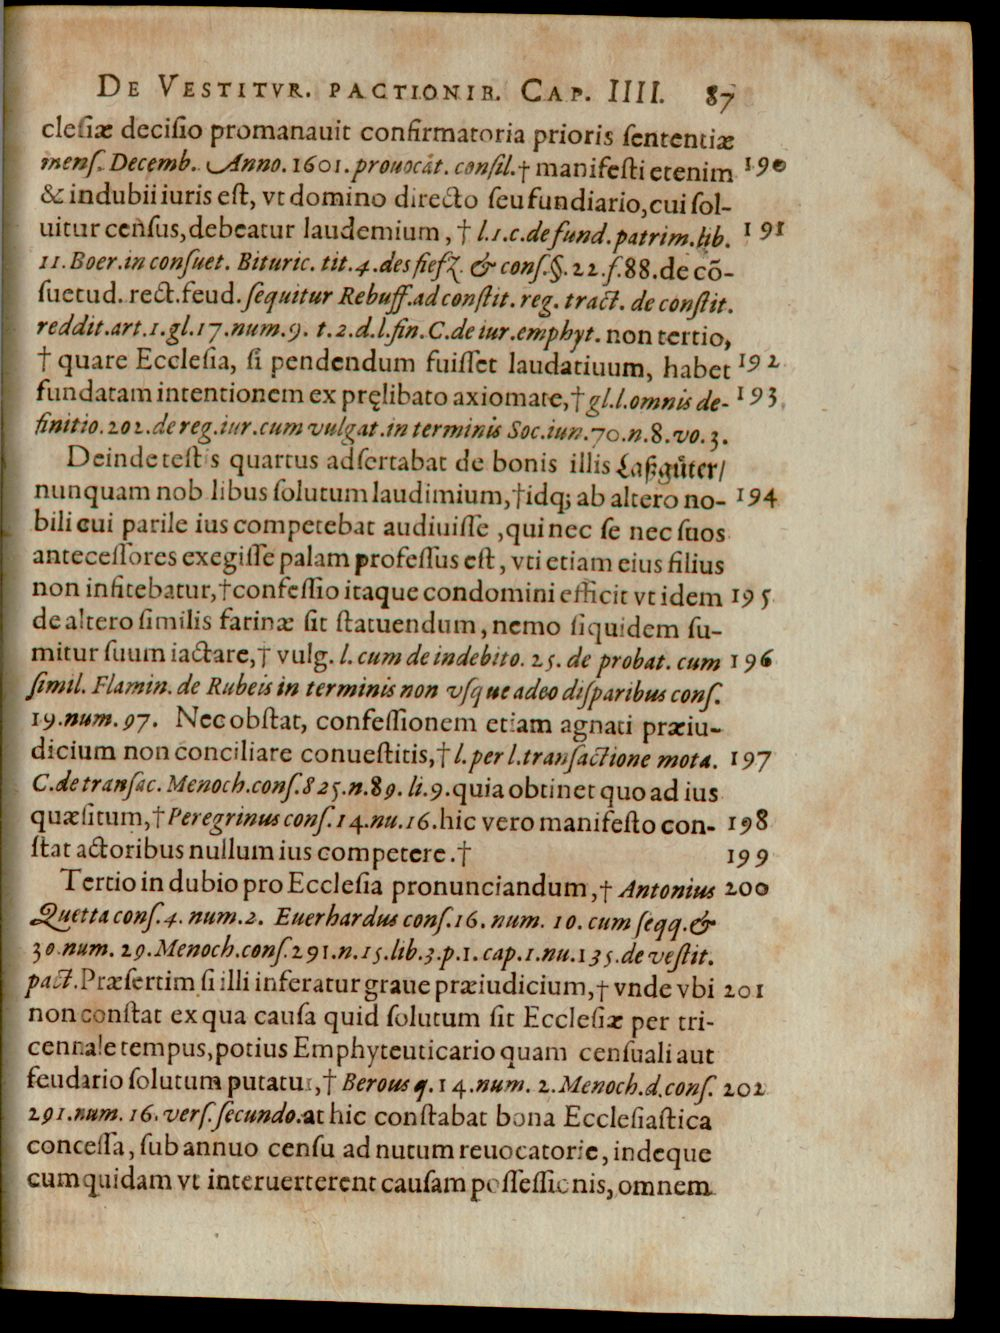 DE VESTITVR. PACTIONIB. CAP. IIII. 87
clesiæ decisio promanauit confirmatoria prioris sententiæ
mens. Decemb. Anno. 1601. prouocat. consil. † manifesti etenim 190
& indubii iuris est, vt domino directo seu fundiario, cui sol-
uitur census, debeatur laudemium, † l. 1. c. de fund. patrim. lib. 191
11. Boer. in consuet. Bituric. tit. 4. des fiefz. & cons. §. 22. f. 88. de cõ-
suetud. rect. feud. sequitur Rebuff. ad constit. reg. tract. de constit.
reddit. art. 1. gl. 17. num. 9. t. 2. d. l. fin. C. de iur. emphyt. non tertio,
† quare Ecclesia, si pendendum fuisset laudatiuum, habet 192
fundatam intentionem ex pręlibato axiomate, † gl. l. omnis de- 193
finitio. 202. de reg. iur. cum vulgat. in terminis Soc. iun. 70. n. 8. vo. 3.
Deinde test s quartus adsertabat de bonis illis Laßgüter/
nunquam nob libus solutum laudimium, † idq; ab altero no- 194
bili cui parile ius competebat audiuisse, qui nec se nec suos
antecessores exegisse palam professus est, vti etiam eius filius
non infitebatur, † confessio itaque condomini efficit vt idem 195
de altero similis farinæ sit statuendum, nemo siquidem su-
mitur suum iactare, † vulg. l. cum de indebito. 25. de probat. cum 196
simil. Flamin. de Rubeis in terminis non vsque adeo disparibus cons.
19. num. 97. Nec obstat, confessionem etiam agnati præiu-
dicium non conciliare conuestitis, † l. per l. transactione mota. 197
C. de transac. Menoch. cons. 825. n. 89. li. 9. quia obtinet quo ad ius
quæsitum, † Peregrinus cons. 14. nu. 16. hic vero manifesto con- 198
stat actoribus nullum ius competere. † 199
Tertio in dubio pro Ecclesia pronunciandum, † Antonius 200
Quetta cons. 4. num. 2. Euerhardus cons. 16. num. 10. cum seqq. &
30. num. 29. Menoch. cons. 291. n. 15. lib. 3. p. 1. cap. 1. nu. 135. de vestit.
pact. Præsertim si illi inferatur graue præiudicium, † vnde vbi 201
non constat ex qua causa quid solutum sit Ecclesiæ per tri-
cennale tempus, potius Emphyteuticario quam censuali aut
feudario solutum putatur, † Berous q. 14. num. 2. Menoch. d. cons. 202
291. num. 16. vers. secundo. at hic constabat bona Ecclesiastica
concessa, sub annuo censu ad nutum reuocatorie, indeque
cum quidam vt interuerterent causam possessionis, omnem